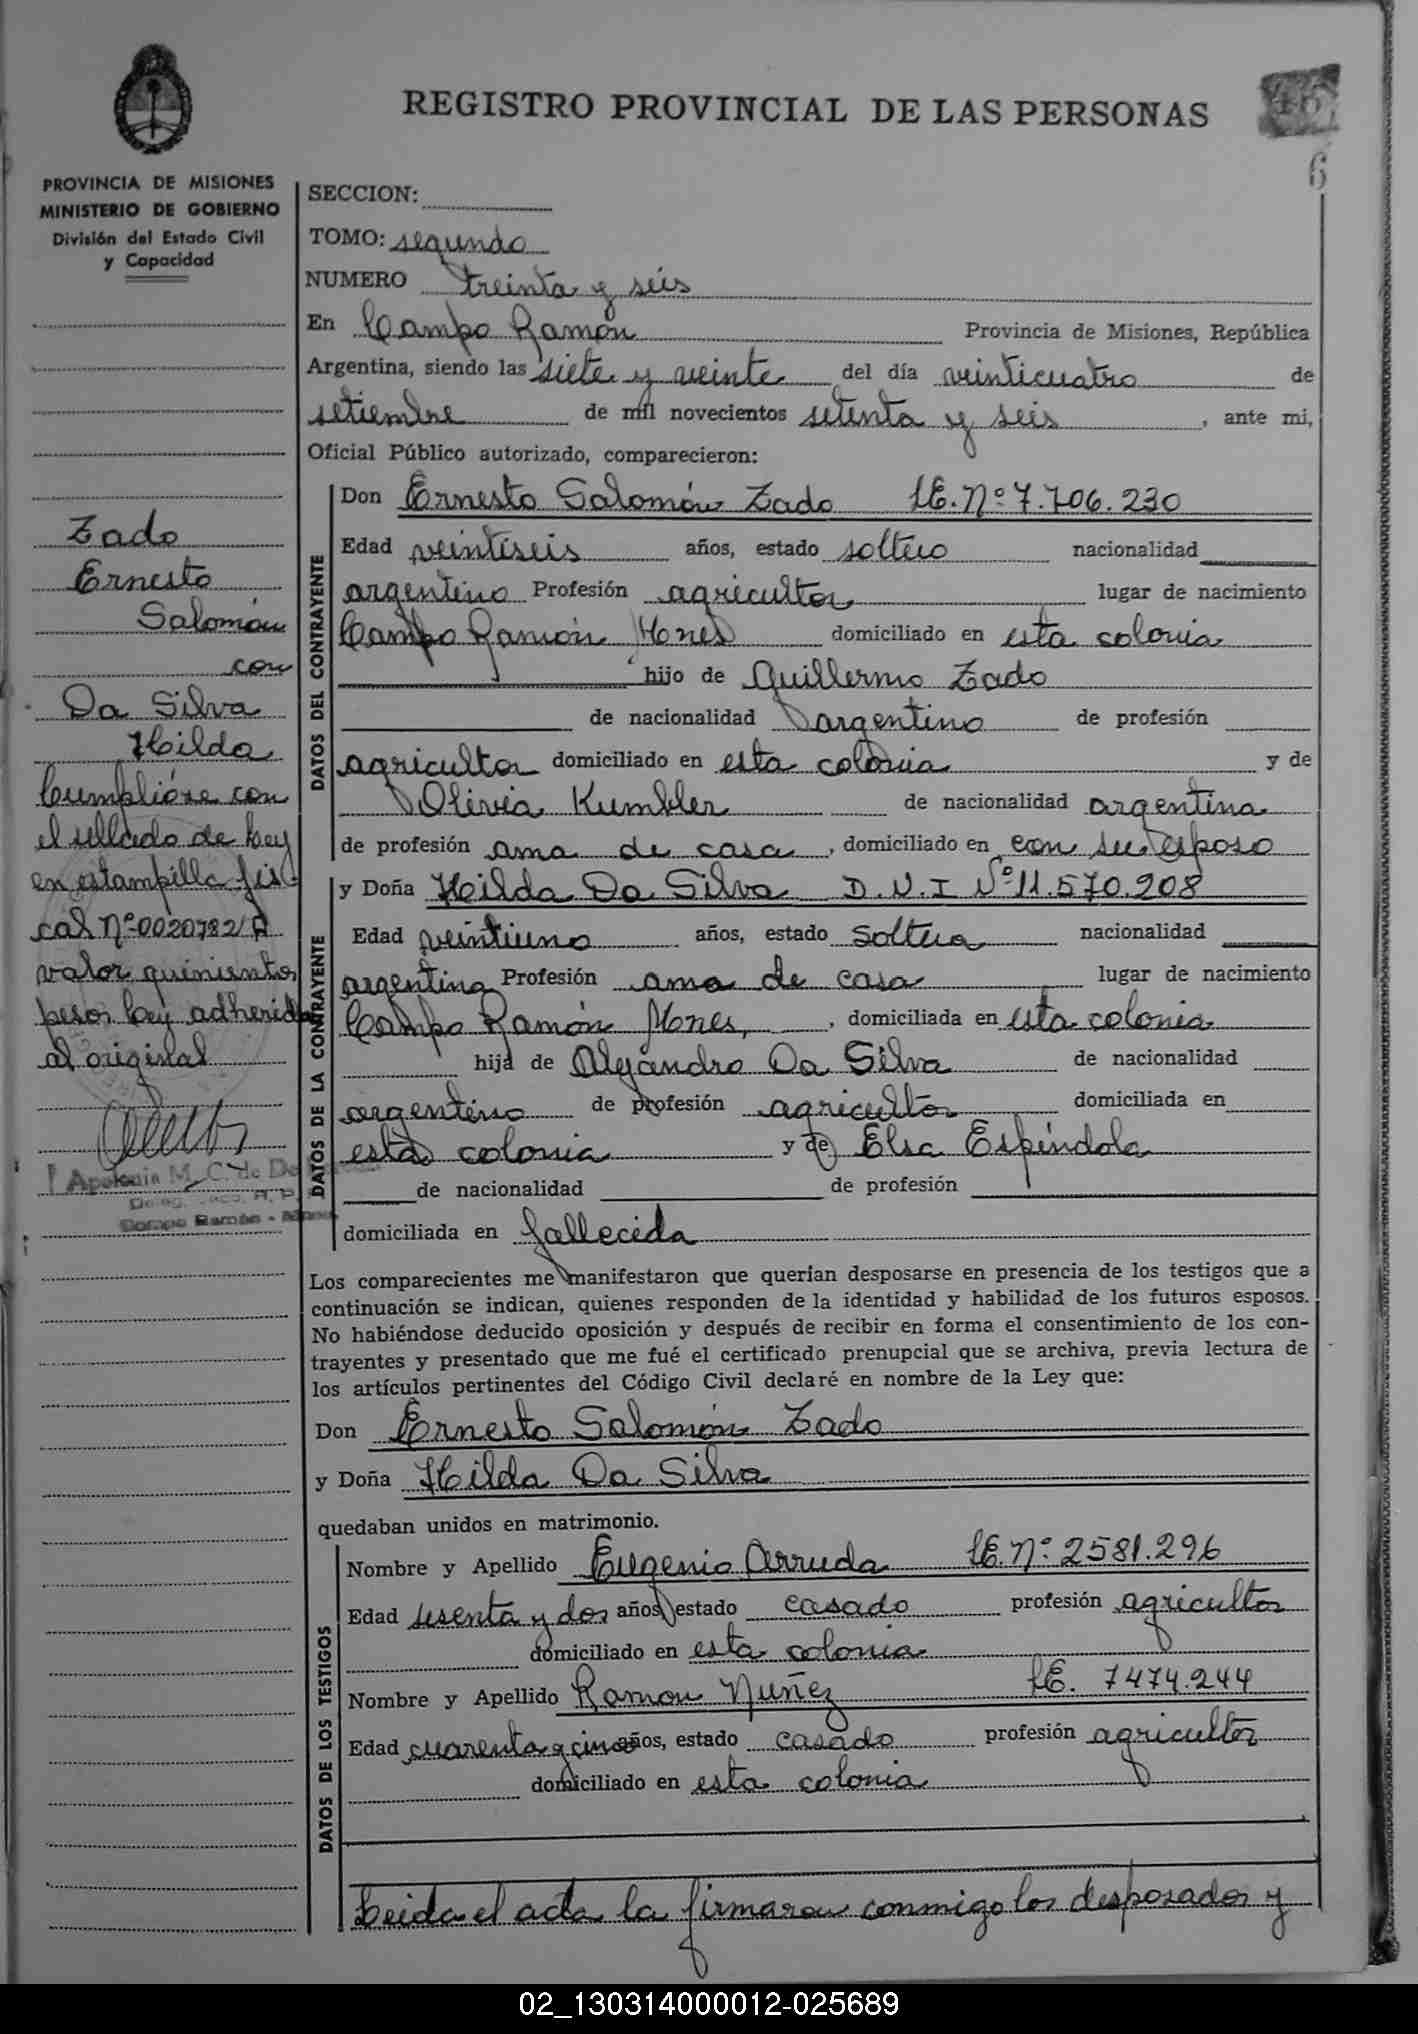 REGISTRO PROVINCIAL DE LAS PERSONAS
6
PROVINCIA DE MISIONES
MINISTERIO DE GOBIERNO
División del Estado Civil
y Capacidad
Zado
Ernesto
Salomón
con
Da Silva
Hilda
Cumplióse con
el sellado de Ley
en estampilla fis-
cal Nº 0020782/A
valor quinientos
pesos Ley adherida
al original
Apolonia M. C. de
Campo Ramón - Mnes
SECCION:
TOMO: segundo
NUMERO treinta y seis
En Campo Ramón Provincia de Misiones, República
Argentina, siendo las siete y veinte del día veinticuatro de
setiembre de mil novecientos setenta y seis, ante mi,
Oficial Público autorizado, comparecieron:
DATOS DEL CONTRAYENTE
Don Ernesto Salomón Zado LE. Nº 7.706.230
Edad veintiseis años, estado soltero nacionalidad
argentino Profesión agricultor lugar de nacimiento
Campo Ramón Mnes domiciliado en esta colonia
hijo de Guillermo Zado
de nacionalidad argentino de profesión
agricultor domiciliado en esta colonia y de
Olivia Kumbler de nacionalidad argentina
de profesión ama de casa, domiciliado en con su esposo
DATOS DE LA CONTRAYENTE
y Doña Hilda Da Silva D.N.I Nº 11.570.208
Edad veintiuno años, estado soltera nacionalidad
argentina Profesión ama de casa lugar de nacimiento
Campo Ramón Mnes, , domiciliada en esta colonia
hija de Alejandro Da Silva de nacionalidad
argentino de profesión agricultor domiciliada en
esta colonia y de Elsa Espíndola
de nacionalidad de profesión
domiciliada en fallecida
Los comparecientes me manifestaron que querían desposarse en presencia de los testigos que a
continuación se indican, quienes responden de la identidad y habilidad de los futuros esposos.
No habiéndose deducido oposición y después de recibir en forma el consentimiento de los con-
trayentes y presentado que me fué el certificado prenupcial que se archiva, previa lectura de
los artículos pertinentes del Código Civil declaré en nombre de la Ley que:
Don Ernesto Salomón Zado
y Doña Hilda Da Silva
quedaban unidos en matrimonio.
DATOS DE LOS TESTIGOS
Nombre y Apellido Eugenio Arruda LE. Nº 2581.296
Edad sesenta y dos años, estado casado profesión agricultor
domiciliado en esta colonia
Nombre y Apellido Ramon Nuñez LE. 7474.244
Edad cuarenta y cinco años, estado casado profesión agricultor
domiciliado en esta colonia
Leida el acta la firmaron conmigo los desposados y
02_130314000012-025689